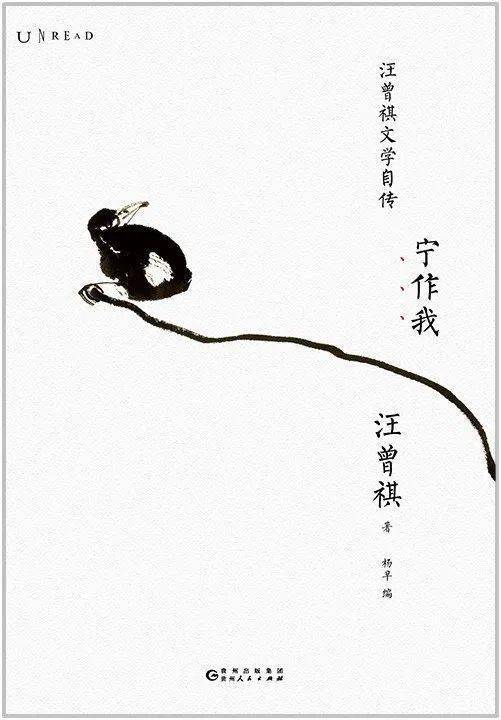 UNREAD
汪曾祺文学自传
宁作我
汪曾祺
著
杨早 编
贵州出版集团
贵州人民出版社